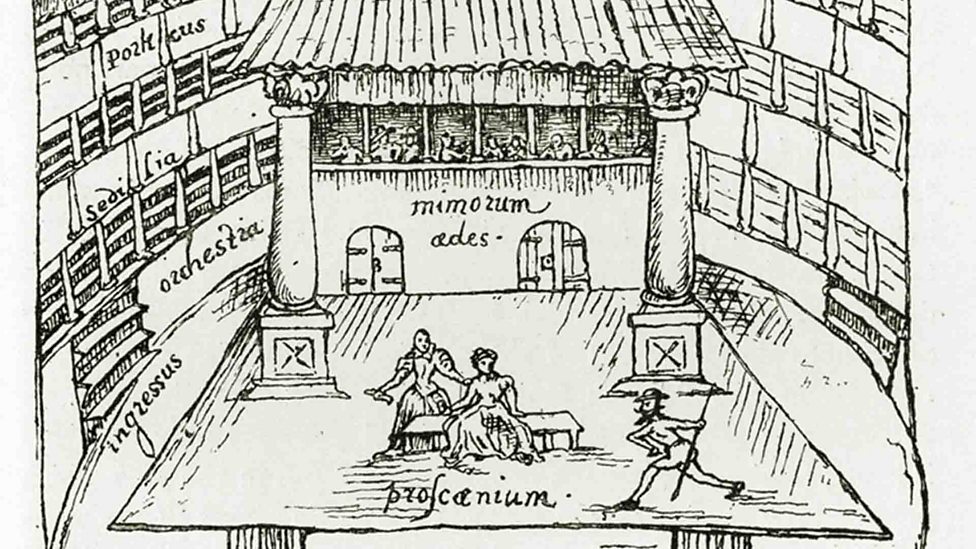 porticus
sedilia
orchestra
ingressus
mimorum
ædes.
proscænium.